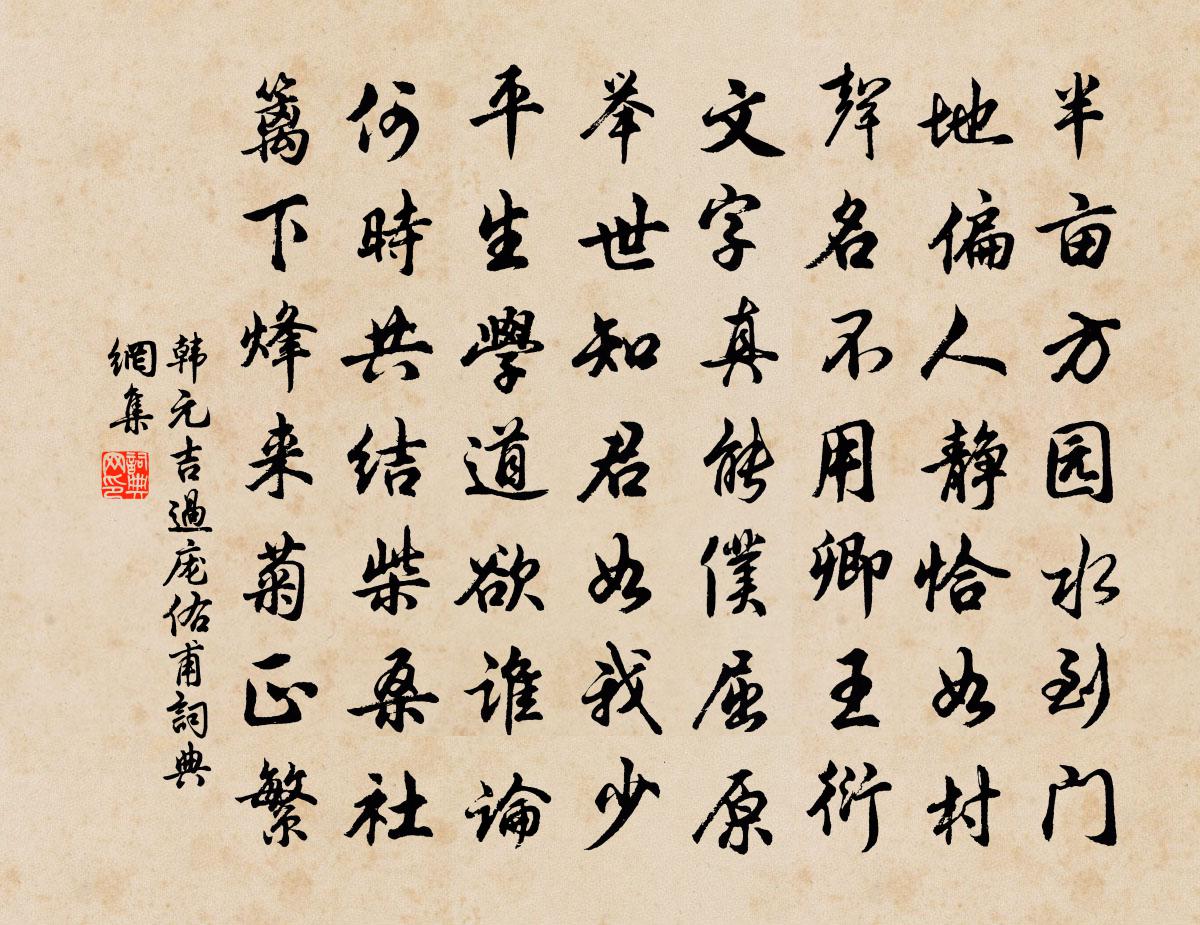 半亩方园水到门
地偏人静恰如村
聲名不用卿王衍
文字真能僕屈原
举世知君如我少
平生學道欲谁論
何時共结柴桑社
篱下烽来菊正繁
韩元吉過庞佑甫詞典
網集
詞典
网